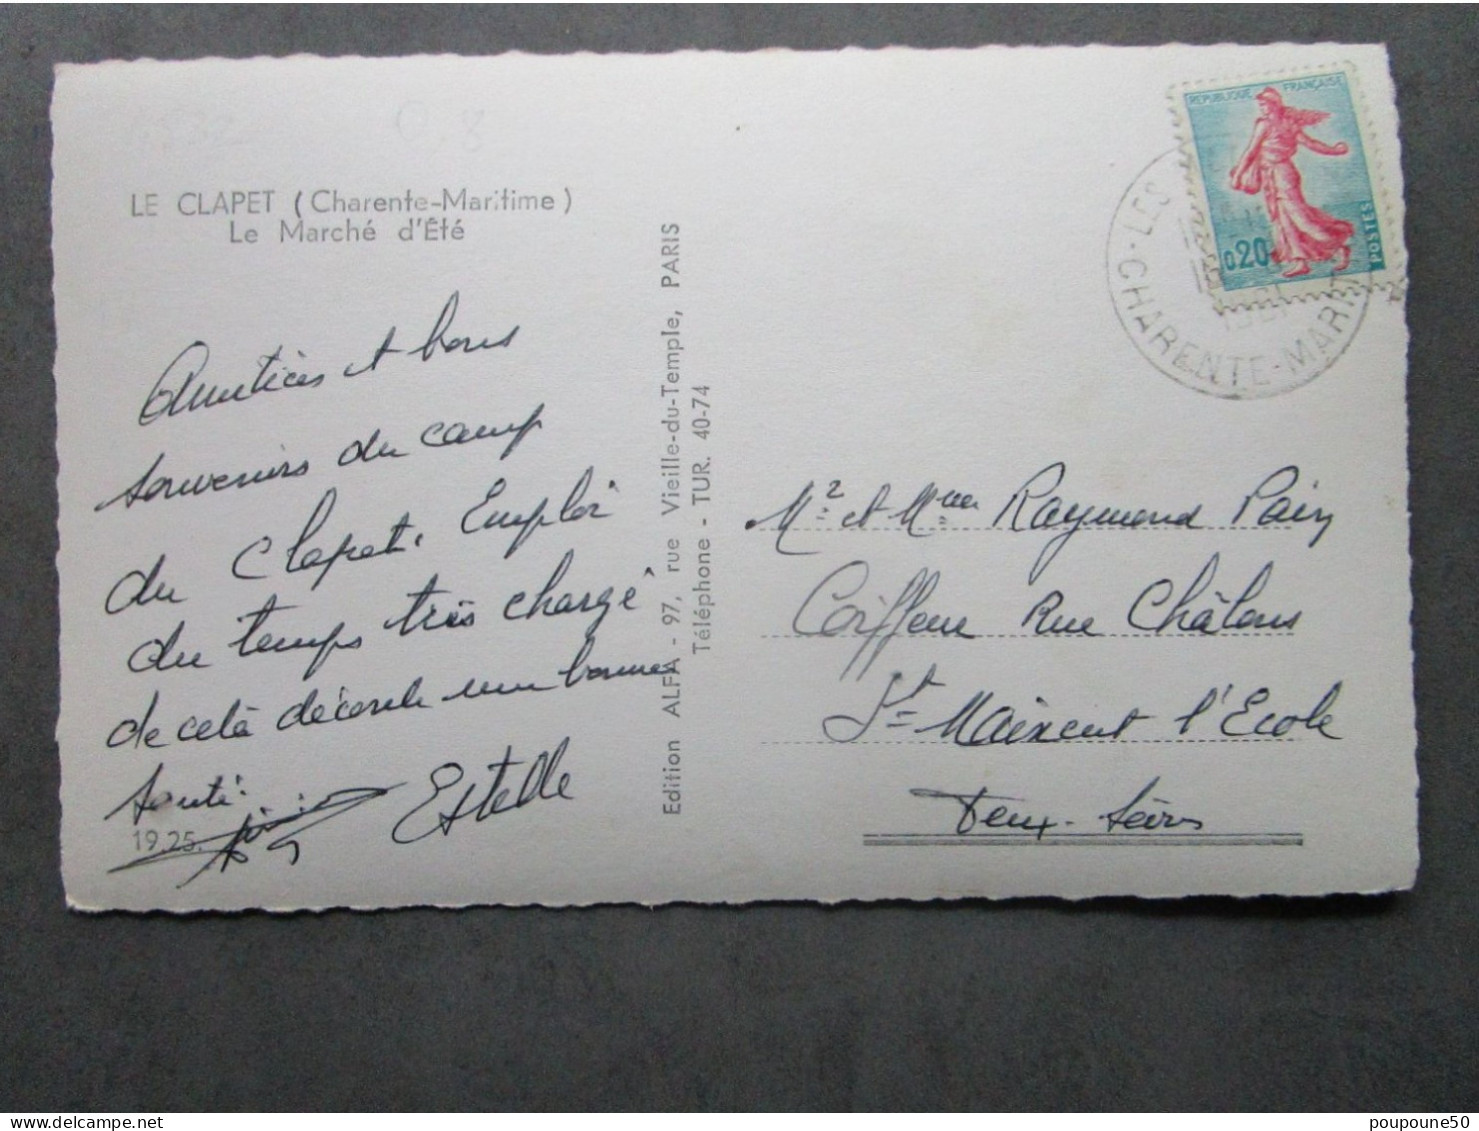 LE CLAPET (Charente-Maritime)
Le Marché d'Été
Amitiés et bons
souvenirs du camp
du Clapet. Emploi
du temps très chargé
de celà découle une bonne
santé.
Estelle
19.25.
Edition ALFA - 97, rue Vieille-du-Temple, PARIS
Téléphone - TUR. 40-74
REPUBLIQUE FRANÇAISE
0,20
POSTES
LES
CHARENTE-MARI
Mr et Mme Raymond Pain
Coiffeur Rue Châlons
St Maixent l'Ecole
Deux-Sèvres
poupoune50